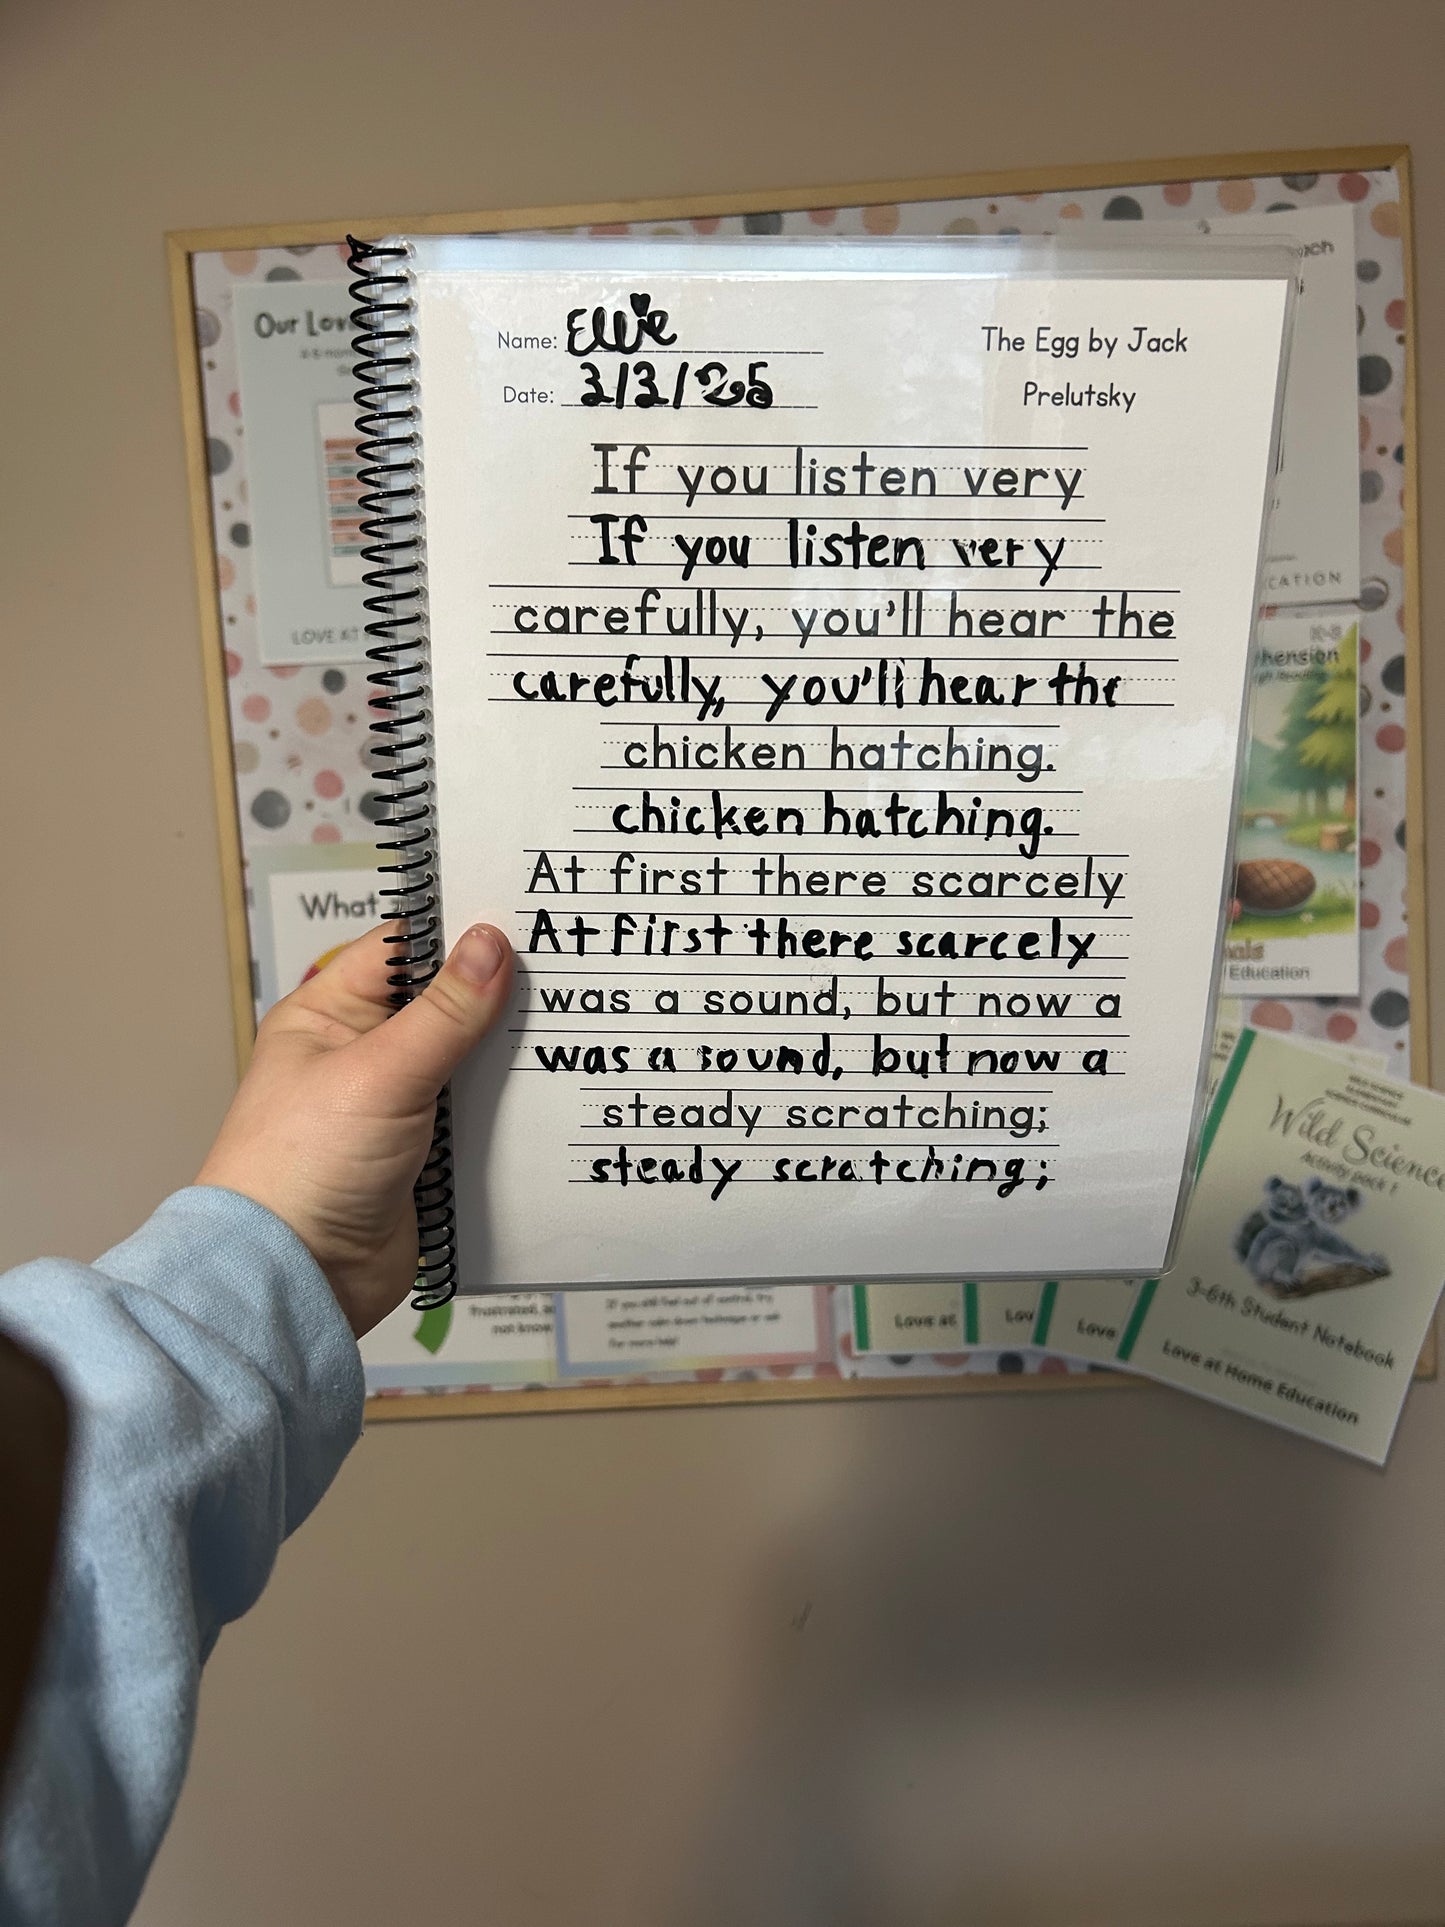 Name: Ellie
Date: 3/3/25
The Egg by Jack
Prelutsky
If you listen very
If you listen very
carefully, you'll hear the
carefully, you'll hear the
chicken hatching.
chicken hatching.
At first there scarcely
At first there scarcely
was a sound, but now a
was a sound, but now a
steady scratching;
steady scratching;
Our Lov
LOVE AT
What
CATION
K-8
hension
als
Education
Wild Science
Activity pack 1
3-6th Student Notebook
Love at Home Education
frustrated,
not know
If you still feel out of control, try
another calm down technique or ask
for more help!
Love at
Lov
Love